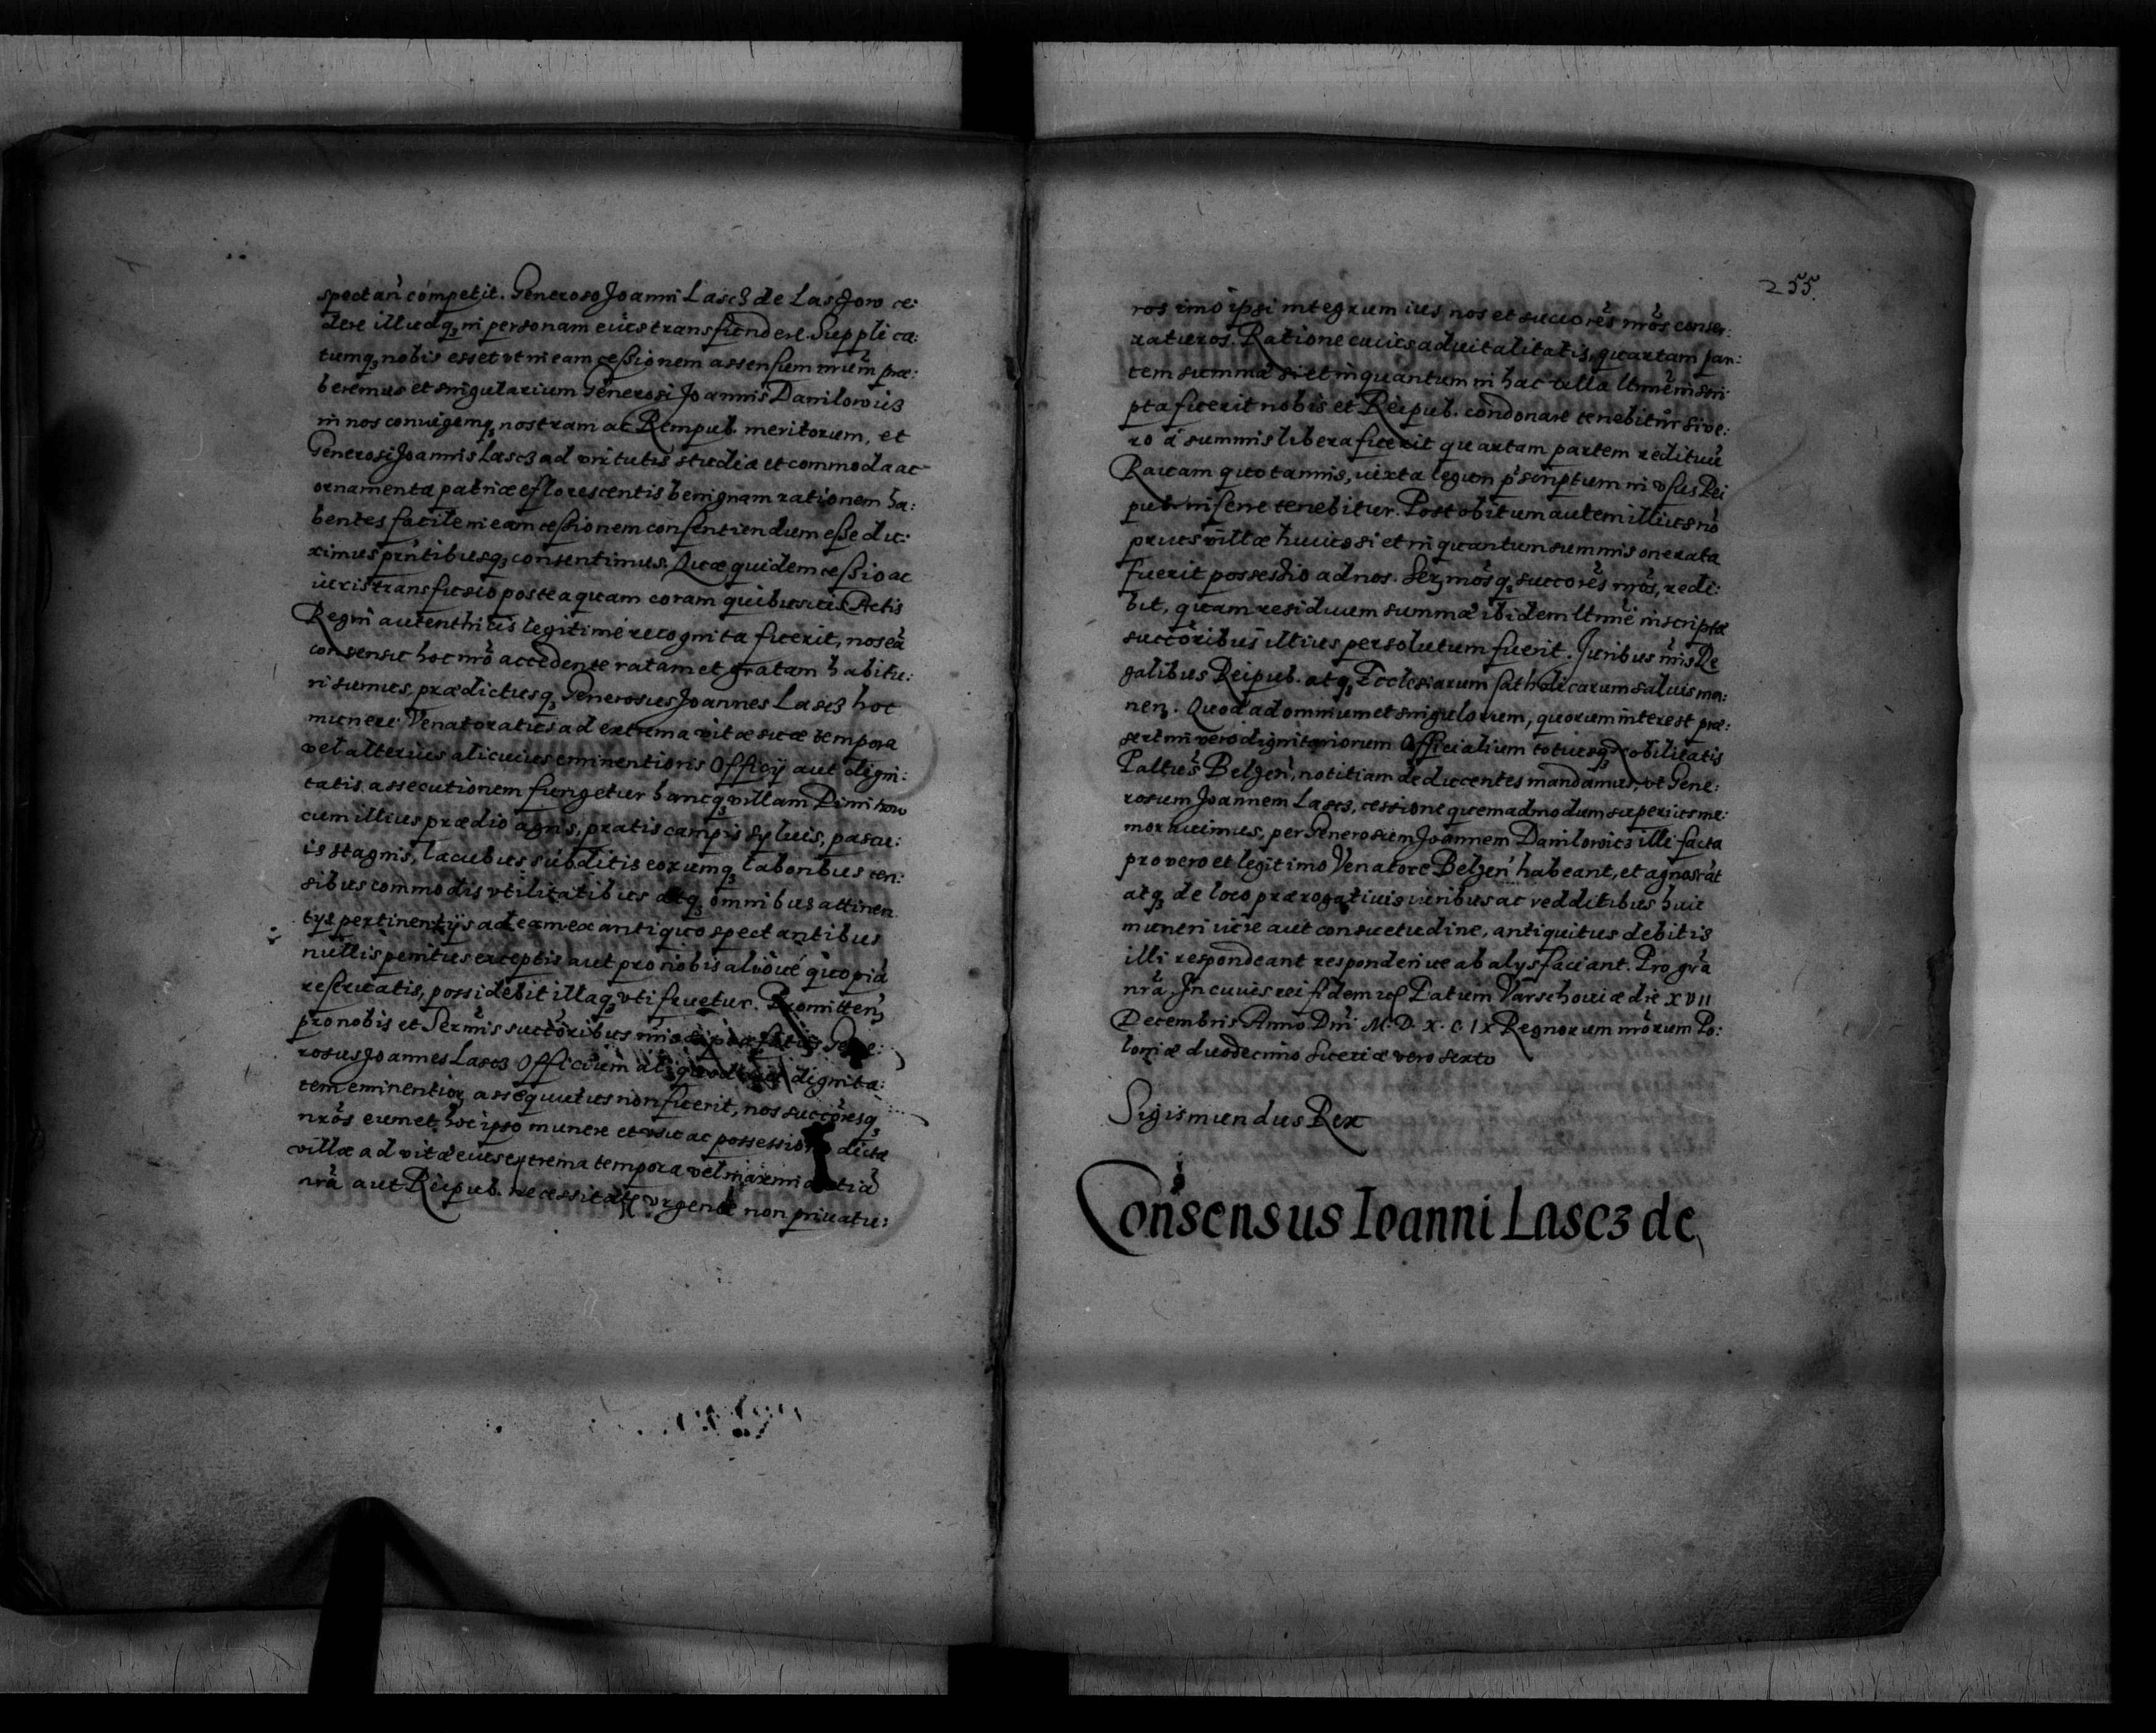 spectan̄ competit. Generoso Joanni Lascz de Lasczow ce:
dere illudq₃ in personam eius transfundere. Supplica:
tumq₃ nobis esset vt in eam cessionem assensum nr̄um præ:
beremus et singularium Generosi Joannis Danilowicz
in nos coniugemq₃ nostram ac Rempub. meritorum, et
Generosi Joannis Lascz ad virtutis studia et commoda ac
ornamenta patriæ eflorescentis benignam rationem ha:
bentes facile in eam cessionem consentiendum esse du:
ximus pr̄ntibusq₃ consentimus. Quæ quidem cessio ac
iuris transfusio postea quam coram quibusuis Actis
Regni autenthicis legitimé recognita fuerit, nos eā
consensu hoc nr̄o accedente ratam et gratam habitu:
ri sumus, prædictusq₃ Generosus Joannes Lascz hoc
munere Venatoratus ad extrema vitæ suæ tempora
vel alterius alicuius eminentioris Officij aut digni:
tatis assecutionem fungetur hancq₃ villam
cum illius prædio agris, pratis campis syluis, pascu:
is stagnis, lacubus subditis eorumq₃ laboribus cen:
sibus commodis vtilitatibus atq₃ omnibus attinen
tys pertinentijs ad eam ex antiquo spectantibus
nullis penitus exceptis aut pro nobis aliōué quopiā
reseruatis, possidebit illaq₃ vti fruetur. Promitten₃
pro nobis et Serm̄is succōribus nr̄is si præfatus Gene:
rosus Joannes Lascz Officium aliquod dignita:
tem eminentior₃ assequutus non fuerit, nos succōresq₃
nr̄os eum et hoc ipso munere et vsu ac possessione dictæ
villæ ad vitæ eius extrema tempora vel
nr̄a aut Reipub. necessitate vrgente non priuatu:
255.
ros imo ipsi integrum ius nos et succōrēs nr̄os conser:
uaturos. Ratione cuius aduitalitatis, quartam par:
tem summæ si et in quantum in hac villa ltmē inscri
pta fuerit nobis et Reipub. condonare tenebitur sive:
ro á summis libera fuerit quartam partem redituū
Rauam quotannis, iuxta legum p̄scriptum in vsus Rei
pub. inferre tenebitur. Post obitum autem illius nō
prius villæ huius si et in quantum summis onerata
fuerit possessio ad nos. Ser₃mosq₃ succorēs nr̄os, redi:
bit, quam residuum summæ ibidem ltmē inscriptæ
succōribus illius persolutum fuerit. Juribus nr̄is Re
galibus Reipub. atq₃ Ecclesiarum Catholicarum saluis ma:
nen₃. Quod ad omnium et singulorum, quorum interest præ:
sertim vero dignitariorum Officialium totiusq₃ Nobilitatis
Paltus̄ Belzen̄, notitiam deducentes mandamus, vt Gene:
rosum Joannem Lascz, cessione quemadmodum superius me:
morauimus, per Generosum Joannem Danilowicz illi facta
pro vero et legitimo Venatore Belzen̄ habeant, et agnoscāt
atq₃ de loco prærogatiuis iuribus ac redditibus huic
muneri iure aut consuetudine, antiquitus debitis
illi respondeant responderiue ab alys faciant. Pro gr̄a
nr̄a. In cuius rei fidem &c Datum Varschouiæ die XVII
Decembris Anno Dn̄i M. D. X. C. IX Regnorum nr̄orum Po:
loniæ duodecimo Sueciæ vero sexto
Sigismundus Rex
Consensus Ioanni Lascz de